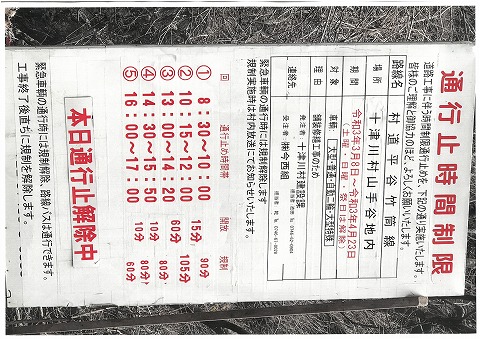 通行止時間制限
道路工事に伴う時間制限通行止めを、下記の通り実施いたします。
皆様のご理解と御協力のほど、よろしくお願いいたします。
路線名 村道平谷竹筒線
場所 十津川村山手谷地内
期間 令和3年3月8日～令和3年4月23日
(土曜・日曜・祭日は解除)
対象 車輌(大型・普通・自動二輪・大型特殊)
理由 舗装修繕工事のため
連絡先 発注者：十津川村建設課
受注者：㈱今西組
緊急車輌の通行時には規制解除いたします。
規制実施時は村内放送にてお知らせいたします。
回 通行止め時間帯 開放 規制
① 8：30～10：00 90分
15分
② 10：15～12：00 105分
60分
③ 13：00～14：20 80分
10分
④ 14：30～15：50 80分
10分
⑤ 16：00～17：00 60分
緊急車輌の通行時には規制解除、路線バスは通行できます。
工事終了後直ちに規制を解除します。
本日通行止解除中